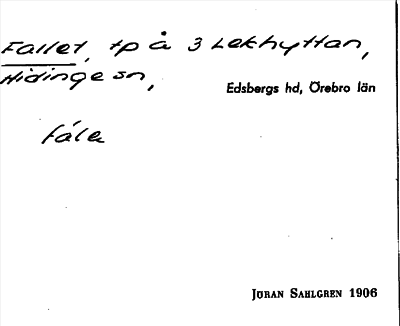 Fallet, tp å 3 Lekhyttan,
Hidinge sn,
Edsbergs hd, Örebro län
fála
JÖRAN SAHLGREN 1906